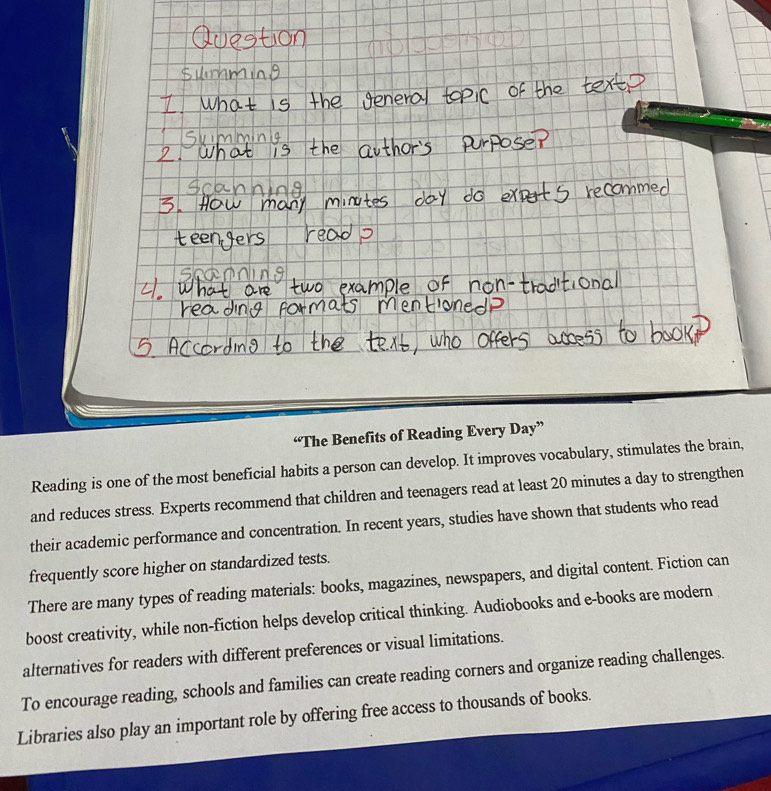 Question
Skimming
1. What is the general topic of the text?
Skimming
2. What is the author's purpose?
Scanning
3. How many minutes day do experts recommed
teengers read?
Scanning
4. What are two example of non-traditional
reading formats mentioned?
5. According to the text, who offers access to book?
“The Benefits of Reading Every Day”
Reading is one of the most beneficial habits a person can develop. It improves vocabulary, stimulates the brain,
and reduces stress. Experts recommend that children and teenagers read at least 20 minutes a day to strengthen
their academic performance and concentration. In recent years, studies have shown that students who read
frequently score higher on standardized tests.
There are many types of reading materials: books, magazines, newspapers, and digital content. Fiction can
boost creativity, while non-fiction helps develop critical thinking. Audiobooks and e-books are modern
alternatives for readers with different preferences or visual limitations.
To encourage reading, schools and families can create reading corners and organize reading challenges.
Libraries also play an important role by offering free access to thousands of books.